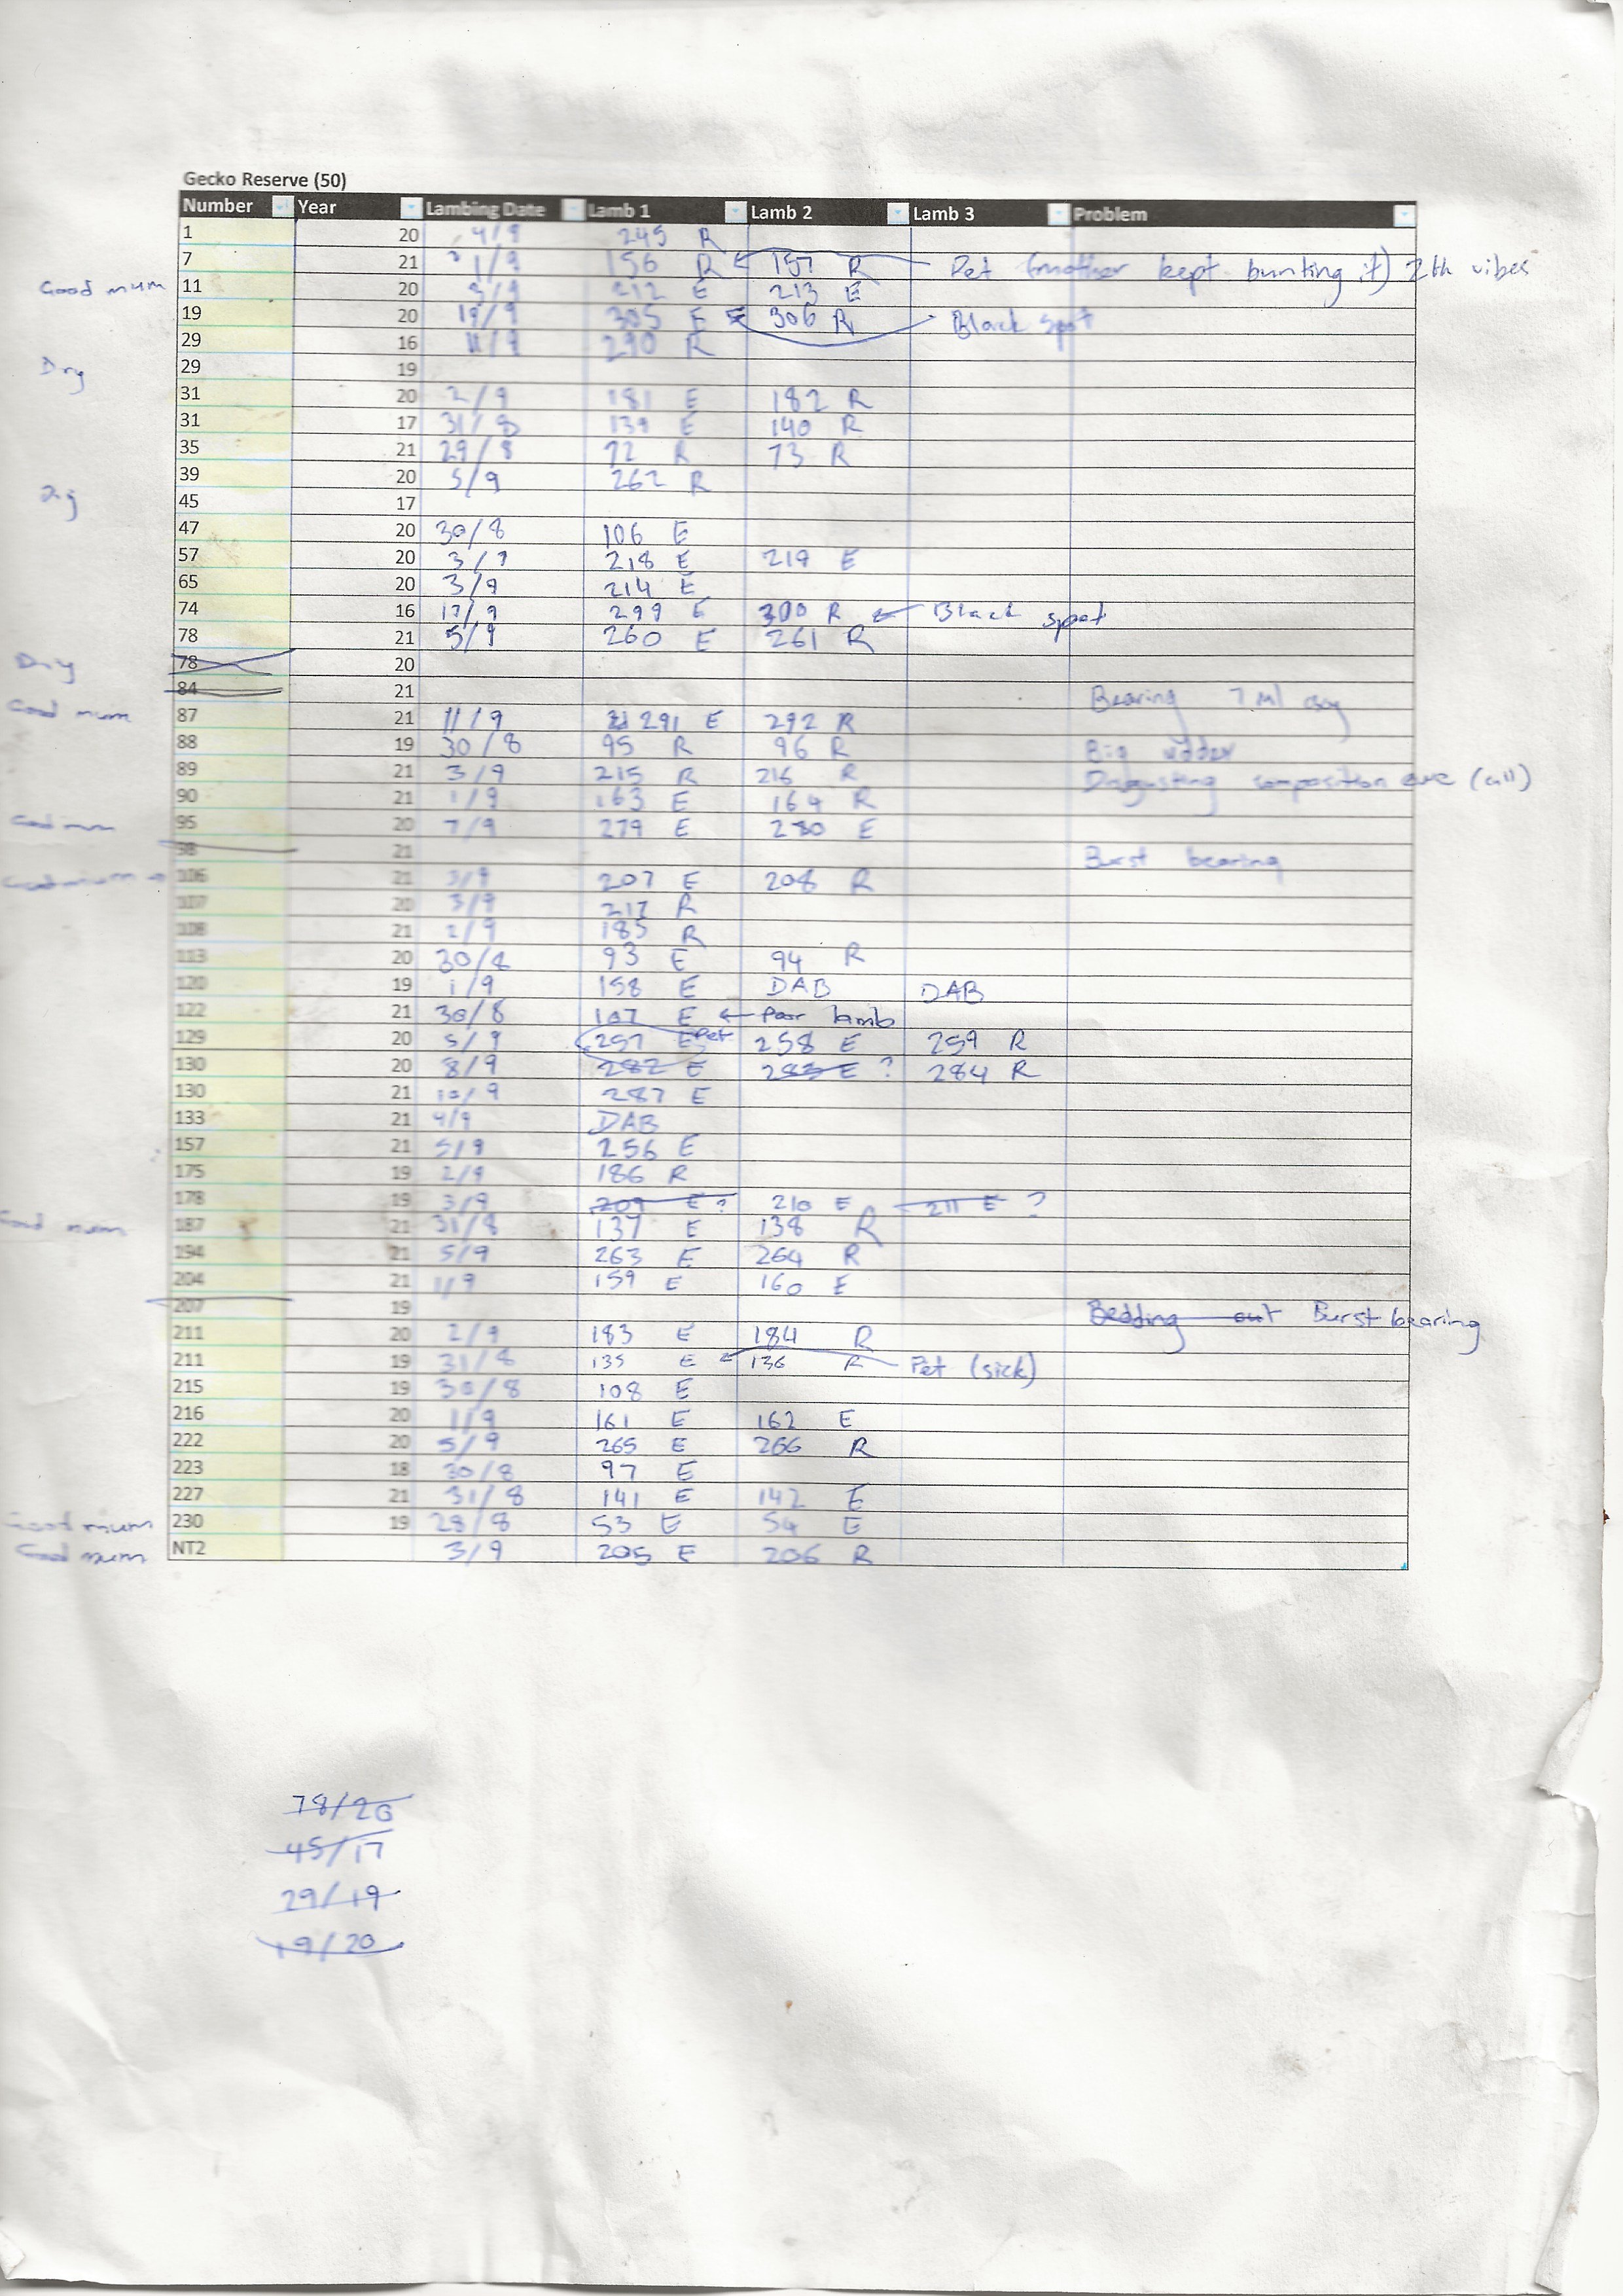 Gecko Reserve (50)
Number Year Lambing Date Lamb 1 Lamb 2 Lamb 3 Problem
1 20 4/9 245 R
7 21 1/9 156 R 157 R Pet (mother kept bunting it) 2th vibes
Good mum 11 20 3/9 212 E 213 E
19 20 19/9 305 E 306 R Black spot
29 16 11/9 290 R
Dry 29 19
31 20 2/9 181 E 182 R
31 17 31/8 139 E 140 R
35 21 29/8 72 R 73 R
39 20 5/9 262 R
45 17
47 20 30/8 106 E
57 20 3/9 218 E 219 E
65 20 3/9 214 E
74 16 17/9 299 E 300 R Black spot
78 21 5/9 260 E 261 R
Dry 78 20
84 21 Bearing 7 Ml
Good mum 87 21 11/9 291 E 292 R
88 19 30/8 95 R 96 R Big udder
89 21 3/9 215 R 216 R Disgusting composition ewe (cull)
90 21 1/9 163 E 164 R
Good mum 95 20 7/9 279 E 280 E
98 21 Burst bearing
Good mum 106 21 3/9 207 E 208 R
107 20 3/9 217 R
108 21 2/9 185 R
113 20 30/8 93 E 94 R
120 19 1/9 158 E DAB DAB
122 21 30/8 107 E Poor lamb
129 20 5/9 257 E Pet 258 E 259 R
130 20 8/9 282 E 283 E ? 284 R
130 21 10/9 287 E
133 21 4/9 DAB
157 21 5/9 256 E
175 19 2/9 186 R
178 19 3/9 209 E ? 210 E 211 E ?
Good mum 187 21 31/8 137 E 138 R
194 21 5/9 263 E 264 R
204 21 1/9 159 E 160 E
207 19 Bedding out Burst bearing
211 20 2/9 183 E 184 R
211 19 31/8 135 E 136 R Pet (sick)
215 19 30/8 108 E
216 20 1/9 161 E 162 E
222 20 5/9 265 E 266 R
223 18 30/8 97 E
227 21 31/8 141 E 142 E
Good mum 230 19 28/8 53 E 54 E
Good mum NT2 3/9 205 E 206 R
78/20
45/17
29/19
19/20